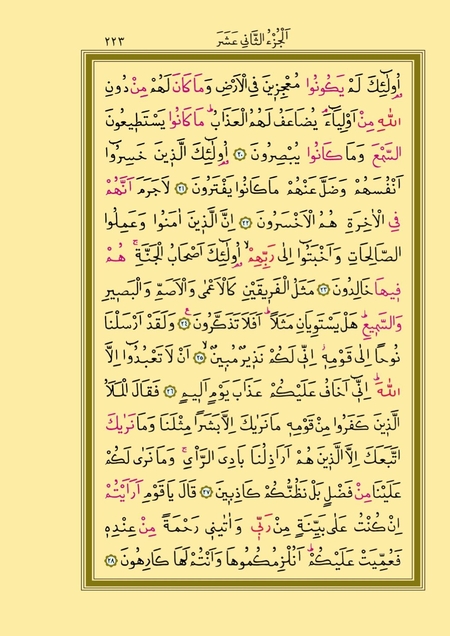 اَلْجُزْءُ الثَّانِي عَشَرَ
٢٢٣
اُو۬لٰٓئِكَ لَمْ يَكُونُوا مُعْجِزٖينَ فِي الْاَرْضِ وَمَا كَانَ لَهُمْ مِنْ دُونِ
اللّٰهِ مِنْ اَوْلِيَٓاءَۘ يُضَاعَفُ لَهُمُ الْعَذَابُۜ مَا كَانُوا يَسْتَطٖيعُونَ
السَّمْعَ وَمَا كَانُوا يُبْصِرُونَ ﴿٢٠﴾ اُو۬لٰٓئِكَ الَّذٖينَ خَسِرُٓوا
اَنْفُسَهُمْ وَضَلَّ عَنْهُمْ مَا كَانُوا يَفْتَرُونَ ﴿٢١﴾ لَا جَرَمَ اَنَّهُمْ
فِي الْاٰخِرَةِ هُمُ الْاَخْسَرُونَ ﴿٢٢﴾ اِنَّ الَّذٖينَ اٰمَنُوا وَعَمِلُوا
الصَّالِحَاتِ وَاَخْبَتُٓوا اِلٰى رَبِّهِمْۙ اُو۬لٰٓئِكَ اَصْحَابُ الْجَنَّةِۚ هُمْ
فٖيهَا خَالِدُونَ ﴿٢٣﴾ مَثَلُ الْفَرٖيقَيْنِ كَالْاَعْمٰى وَالْاَصَمِّ وَالْبَصٖيرِ
وَالسَّمٖيعِۜ هَلْ يَسْتَوِيَانِ مَثَلًاۜ اَفَلَا تَذَكَّرُونَ۟ ﴿٢٤﴾ وَلَقَدْ اَرْسَلْنَا
نُوحًا اِلٰى قَوْمِهٖۘ اِنّٖي لَكُمْ نَذٖيرٌ مُبٖينٌۙ ﴿٢٥﴾ اَنْ لَا تَعْبُدُٓوا اِلَّا
اللّٰهَۜ اِنّٖٓي اَخَافُ عَلَيْكُمْ عَذَابَ يَوْمٍ اَلٖيمٍ ﴿٢٦﴾ فَقَالَ الْمَلَاُ
الَّذٖينَ كَفَرُوا مِنْ قَوْمِهٖ مَا نَرٰيكَ اِلَّا بَشَرًا مِثْلَنَا وَمَا نَرٰيكَ
اتَّبَعَكَ اِلَّا الَّذٖينَ هُمْ اَرَاذِلُنَا بَادِيَ الرَّأْيِۚ وَمَا نَرٰى لَكُمْ
عَلَيْنَا مِنْ فَضْلٍ بَلْ نَظُنُّكُمْ كَاذِبٖينَ ﴿٢٧﴾ قَالَ يَا قَوْمِ اَرَاَيْتُمْ
اِنْ كُنْتُ عَلٰى بَيِّنَةٍ مِنْ رَبّٖي وَاٰتٰينٖي رَحْمَةً مِنْ عِنْدِهٖ
فَعُمِّيَتْ عَلَيْكُمْۜ اَنُلْزِمُكُمُوهَا وَاَنْتُمْ لَهَا كَارِهُونَ ﴿٢٨﴾